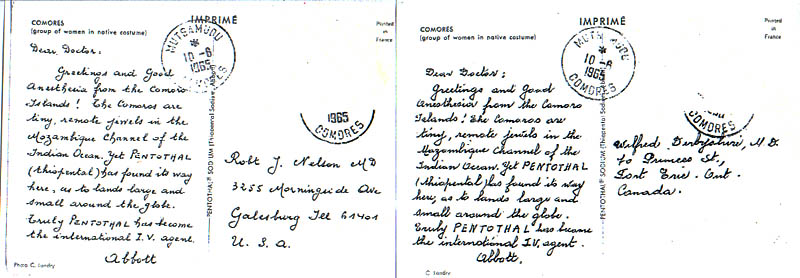 IMPRIMÉ
COMORES
(group of women in native costume)
Printed
in
France
MUTSAMUDU
10-6
1965
COMORES
Dear Doctor:
Greetings and Good
Anesthesia from the Comoro
Islands! The Comoros are
tiny, remote jewels in the
Mozambique Channel of the
Indian Ocean. Yet PENTOTHAL
(thiopental) has found its way
here, as to lands large and
small around the globe.
Truly PENTOTHAL has become
the international I.V. agent.
Abbott
Photo C. Landry
PENTOTHAL® SODIUM (Thiopental Sodium, Abbott)
1965
COMORES
Robt J. Nelson MD
3255 Morningside Ave
Galesburg Ill 61401
U. S. A.
IMPRIMÉ
COMORES
(group of women in native costume)
Printed
in
France
10-6
1965
COMORES
Dear Doctor:
Greetings and Good
Anesthesia from the Comoro
Islands! The Comoros are
tiny, remote jewels in the
Mozambique Channel of the
Indian Ocean. Yet PENTOTHAL
(thiopental) has found its way
here, as to lands large and
small around the globe.
Truly PENTOTHAL has become
the international I.V. agent.
Abbott.
C. Landry
PENTOTHAL® SODIUM (Thiopental Sodium, Abbott)
COMORES
Wilfred Derbyshire, M.D.
Princess St.,
Fort Erie. Ont.
Canada.